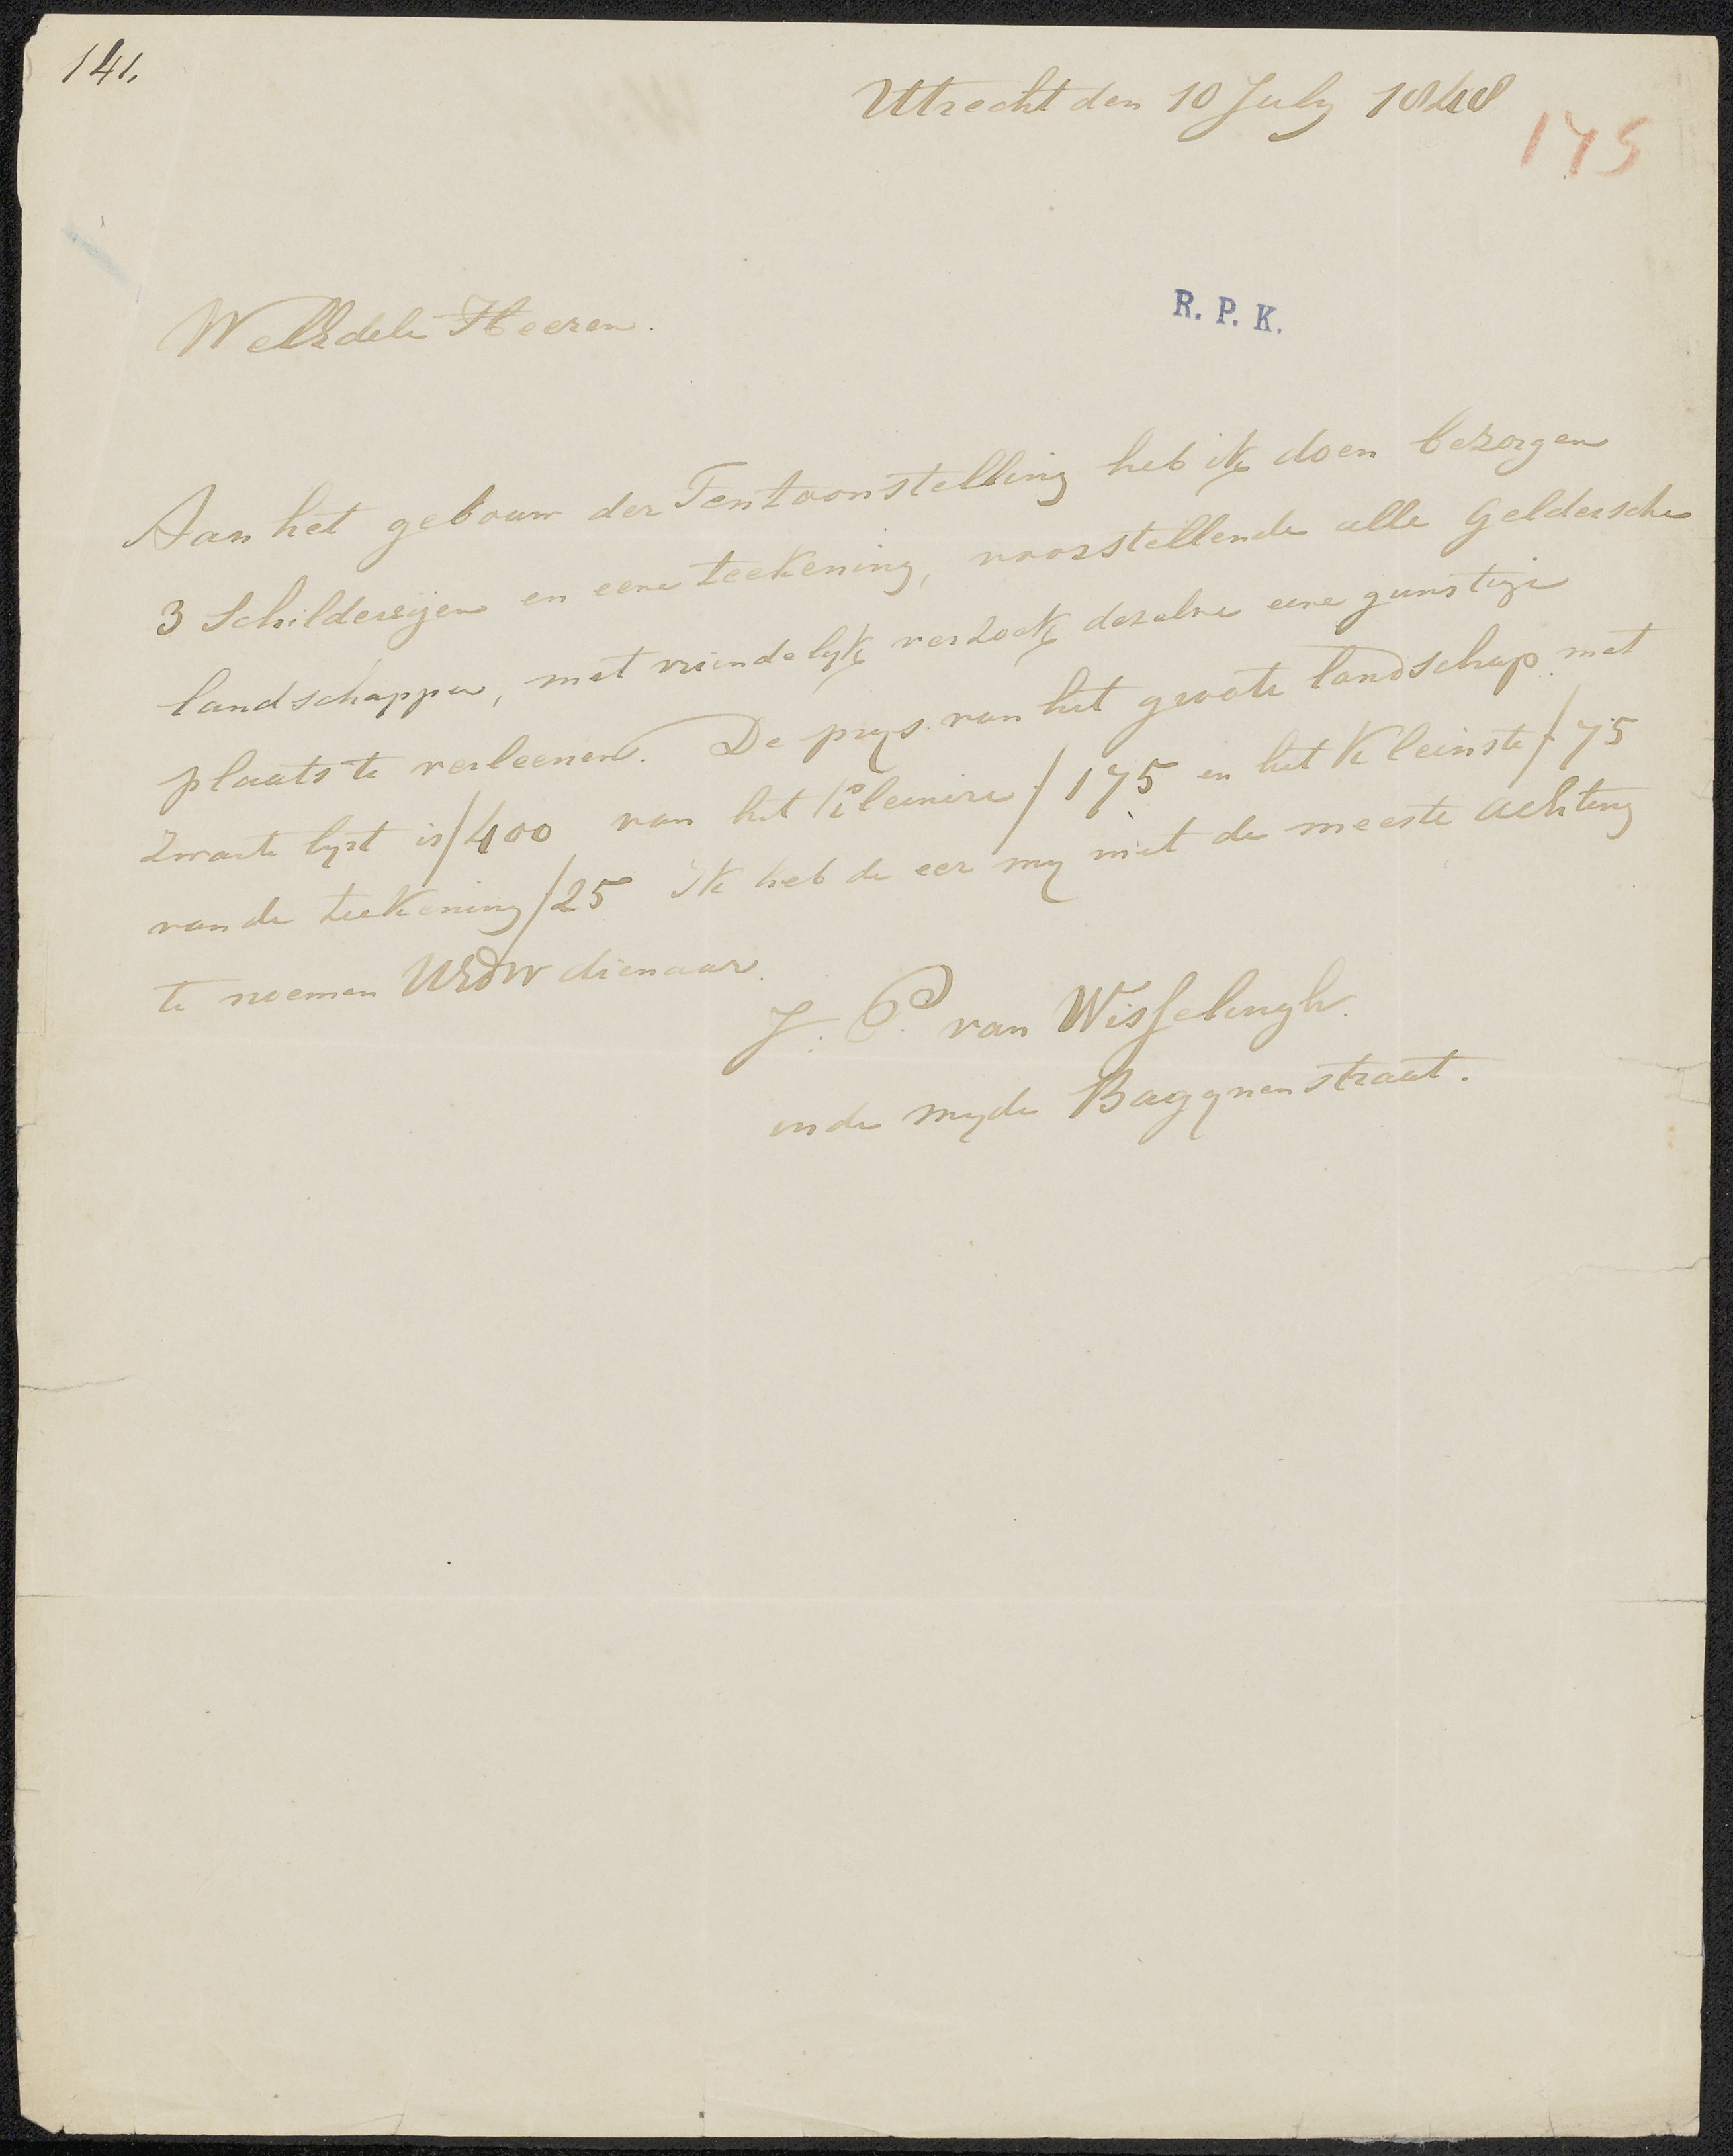 141.
Utrecht den 10 July 1848
175
R. P. K.
WelEdele Heeren.
Aan het gebouw der Tentoonstelling heb ik doen bezorgen
3 Schilderijen en eene teekening, voorstellende alle Geldersche
landschappen, met vriendelyk verzoek dezelve eene gunstige
plaats te verleenen. De prys van het groote landschap met
zwarte lyst is ƒ 400 van het kleinere ƒ 175 en het kleinste ƒ 75
van de teekening ƒ 25 Ik heb de eer my met de meeste achting
te noemen UEdW dienaar.
J. P. van Wisselingh.
in de Bagynenstraat.